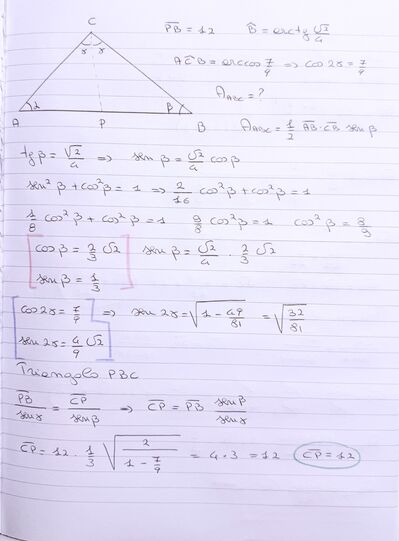 C
γ γ
α β
A P B
P̅B̅ = 12 B̂ = arctg √2/4
AĈB = arccos 7/9 ⇒ cos 2γ = 7/9
A_ABC = ?
A_ABC = 1/2 A̅B̅ · C̅B̅ sen β
tg β = √2/4 ⇒ sen β = √2/4 cos β
sen² β + cos² β = 1 ⇒ 2/16 cos² β + cos² β = 1
1/8 cos² β + cos² β = 1 9/8 cos² β = 1 cos² β = 8/9
cos β = 2/3 √2 sen β = √2/4 · 2/3 √2
sen β = 1/3
cos 2γ = 7/9 ⇒ sen 2γ = √(1 - 49/81) = √(32/81)
sen 2γ = 4/9 √2
Triangolo PBC
P̅B̅/sen γ = C̅P̅/sen β ⇒ C̅P̅ = P̅B̅ sen β/sen γ
C̅P̅ = 12 · 1/3 √(2/(1 - 7/9)) = 4 · 3 = 12 C̅P̅ = 12